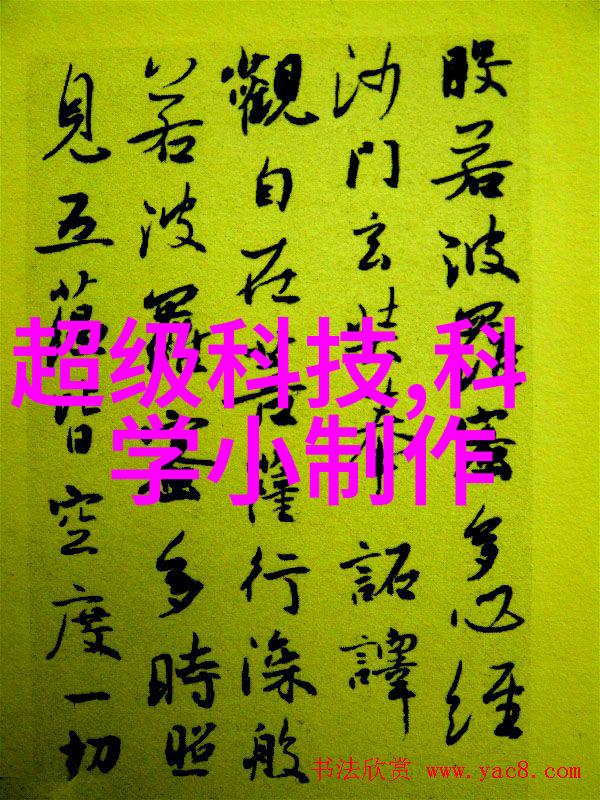 般若波羅蜜多心經
沙門玄奘奉 詔譯
觀自在菩薩行深般
若波羅蜜多時照
見五蘊皆空度一切
超级科技,科
学小制作
书法欣赏 www.yac8.com